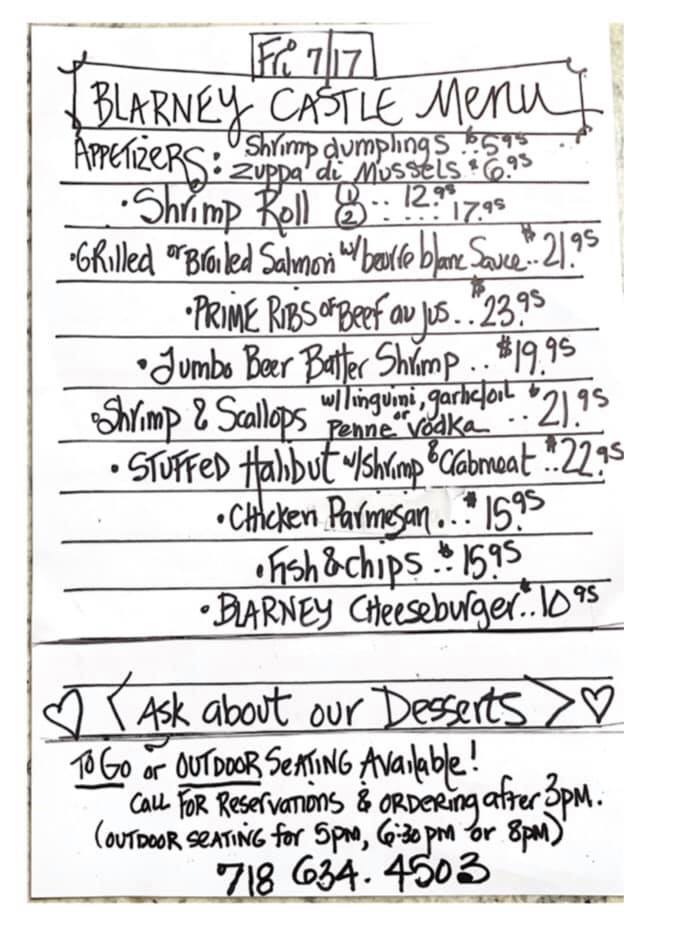 Fri 7/17
BLARNEY CASTLE Menu
APPETIZERS: Shrimp dumplings $5.95
Zuppa di Mussels $6.95
• Shrimp Roll ① .. 12.95
② .... 17.95
• GRilled or Broiled Salmon w/beurre blanc Sauce.. $21.95
• PRIME RIBS OF Beef au jus.. $23.95
• Jumbo Beer Batter Shrimp .. $19.95
• Shrimp & Scallops w/linguini, garlic/oil or Penne Vodka .. $21.95
• STUFFED Halibut w/shrimp & Crabmeat .. $22.95
• CHicken Parmesan... $15.95
• Fish & chips .. $15.95
• BLARNEY CHeeseburger.. $10.95
♡ < Ask about our Desserts > ♡
To Go or OUTDOOR SeATING Available!
CALL FOR Reservations & ORDERing after 3pm.
(OUTDOOR SEATING for 5pm, 6:30pm or 8pm)
718 634. 4503